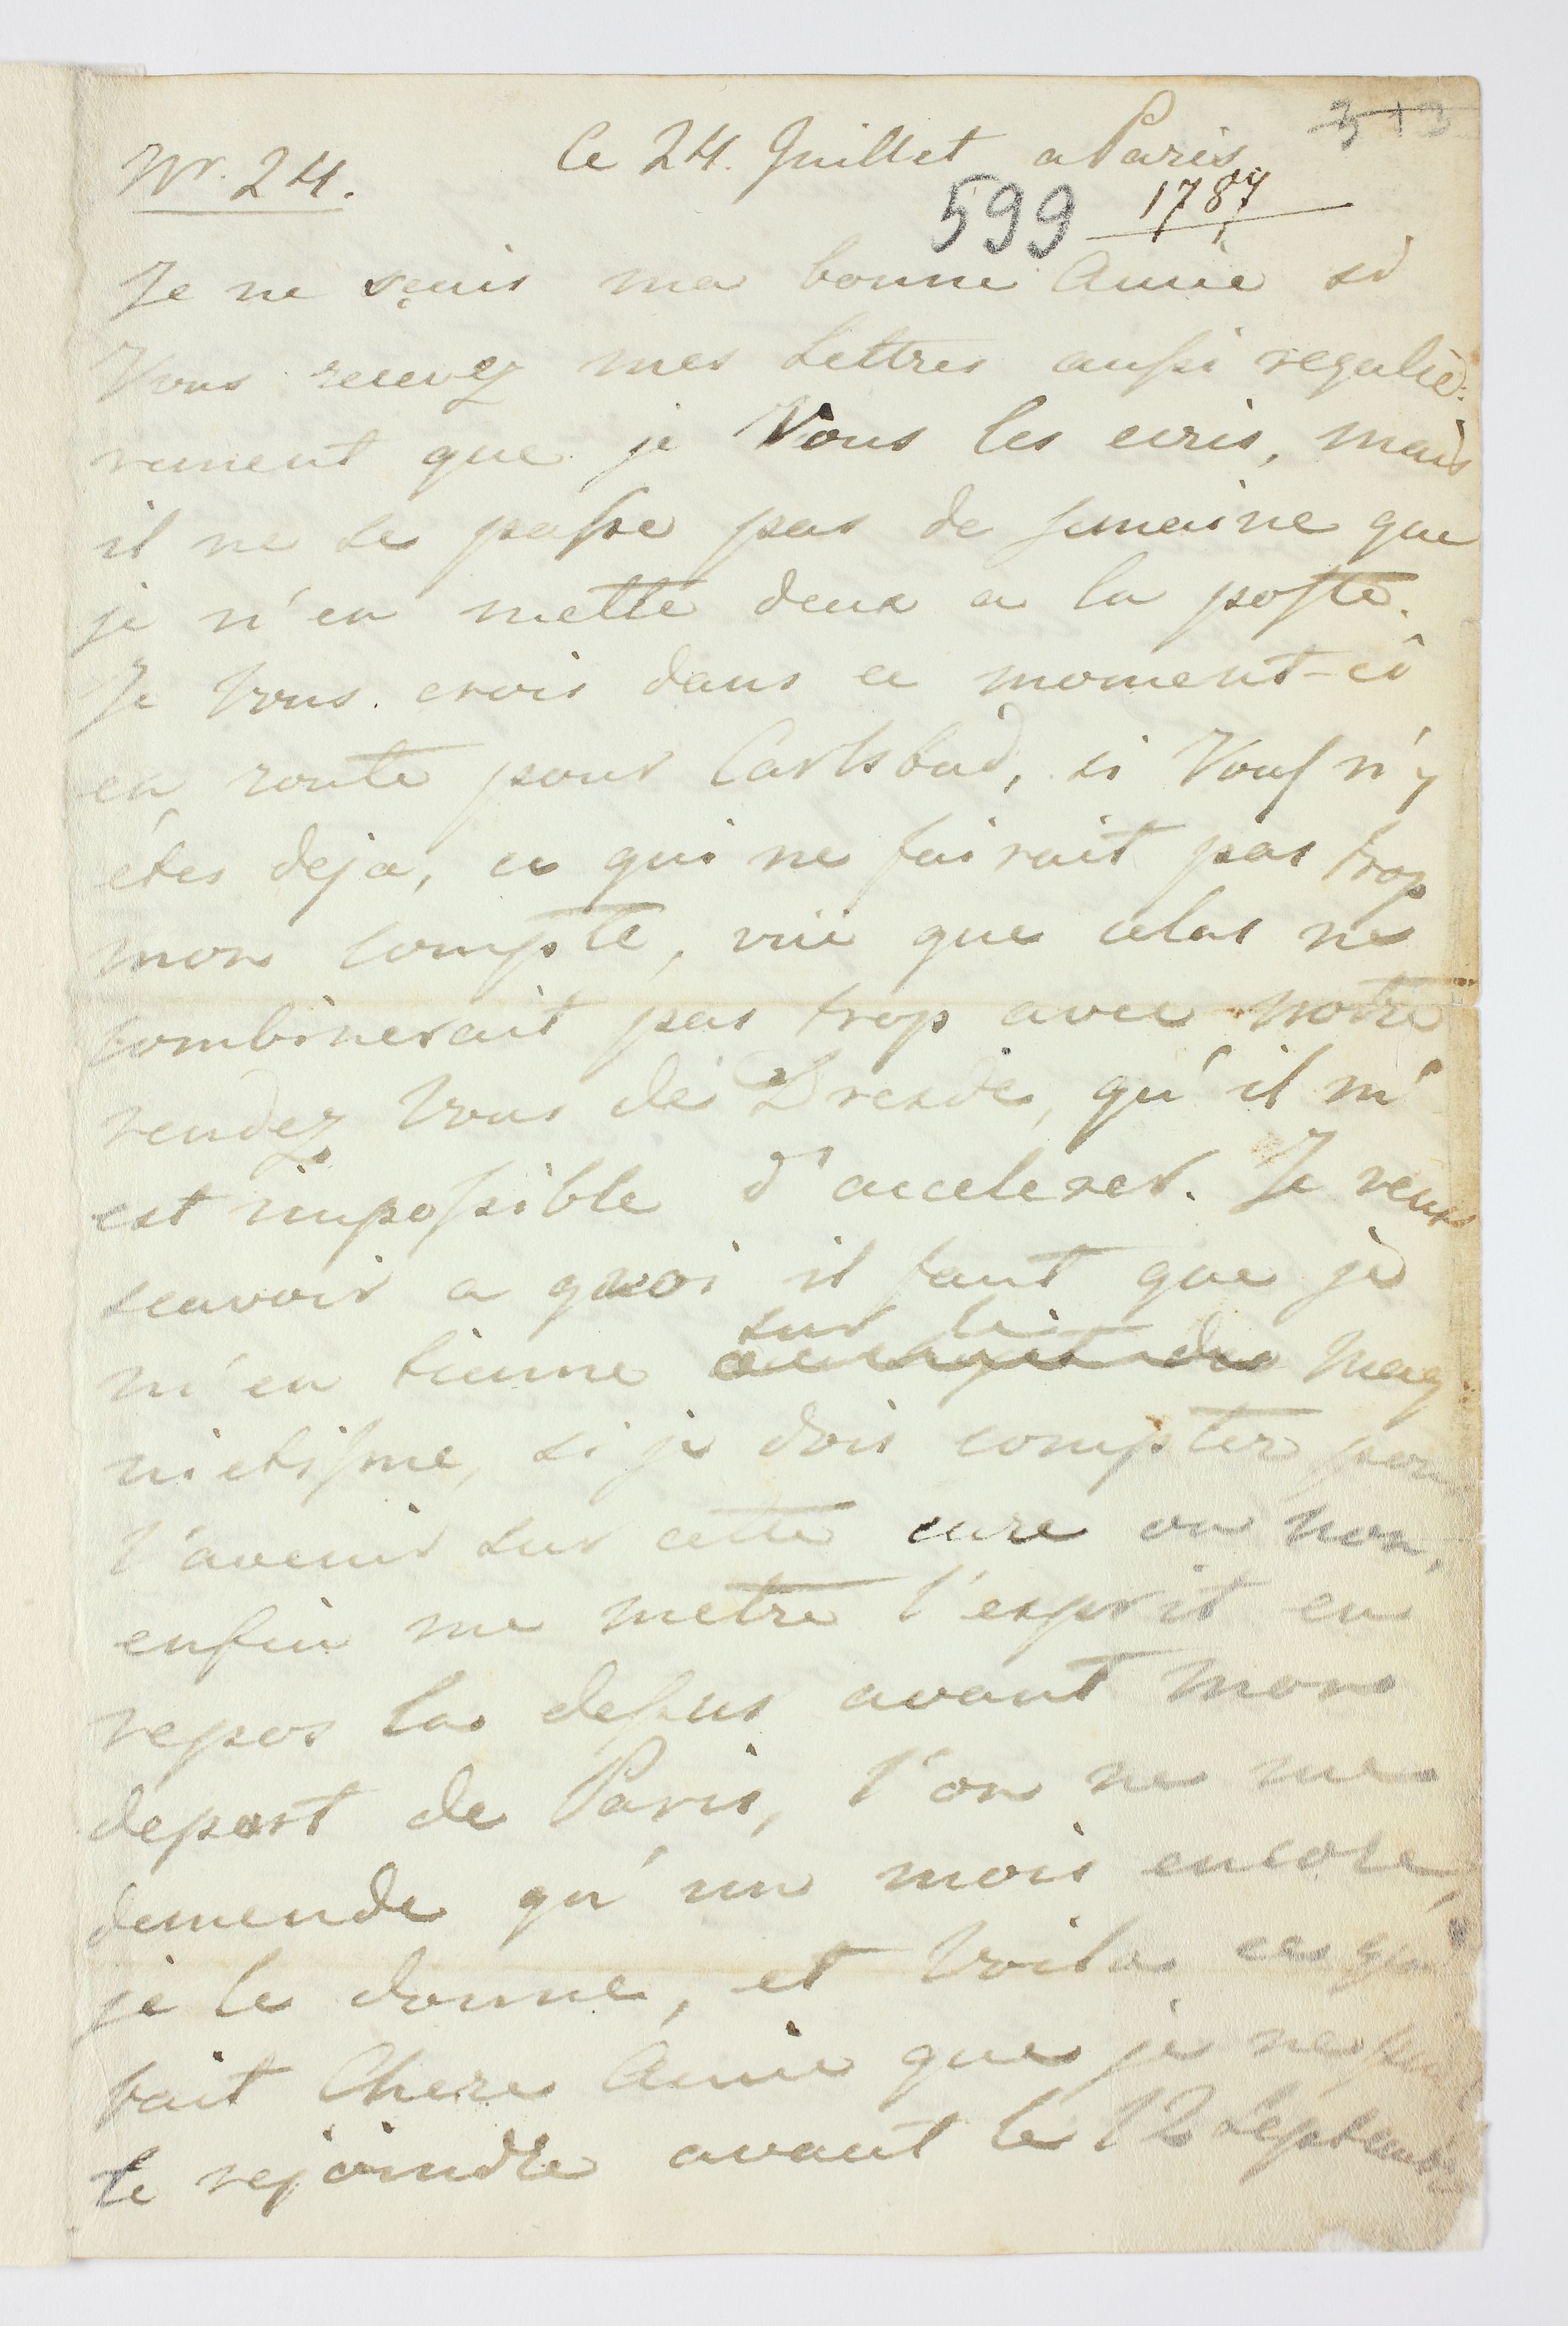 Nr. 24.
Ce 24. Juillet a Paris
599 1787
Je ne sçais ma bonne Amie si
Vous recevez mes Lettres aussi regulié:
rement que je Vous les ecris, mais
il ne se passe pas de semaine que
je n'en mette deux a la poste.
Je Vous crois dans ce moment-ci
en route pour Carlsbad, si Vous n'y
étes deja, ce qui ne fairait pas trop
mon compte, vûe que celas ne
combinerait pas trop avec notre
rendez Vous de Dresde, qu'il m'
est impossible d'accelerer. Je veux
scavoir a quoi il faut que je
sur le
m'en tienne Mag
nietisme, si je dois compter pour
l'avenir sur cette cure ou non,
enfin me metre l'esprit en
repos la dessus avant mon
depart de Paris, l'on ne me
demende qu'un mois encore,
je le donne, et Voila ce qui
fait Chere Amie que je ne puis
te rejoindre avant le 12 Septembre